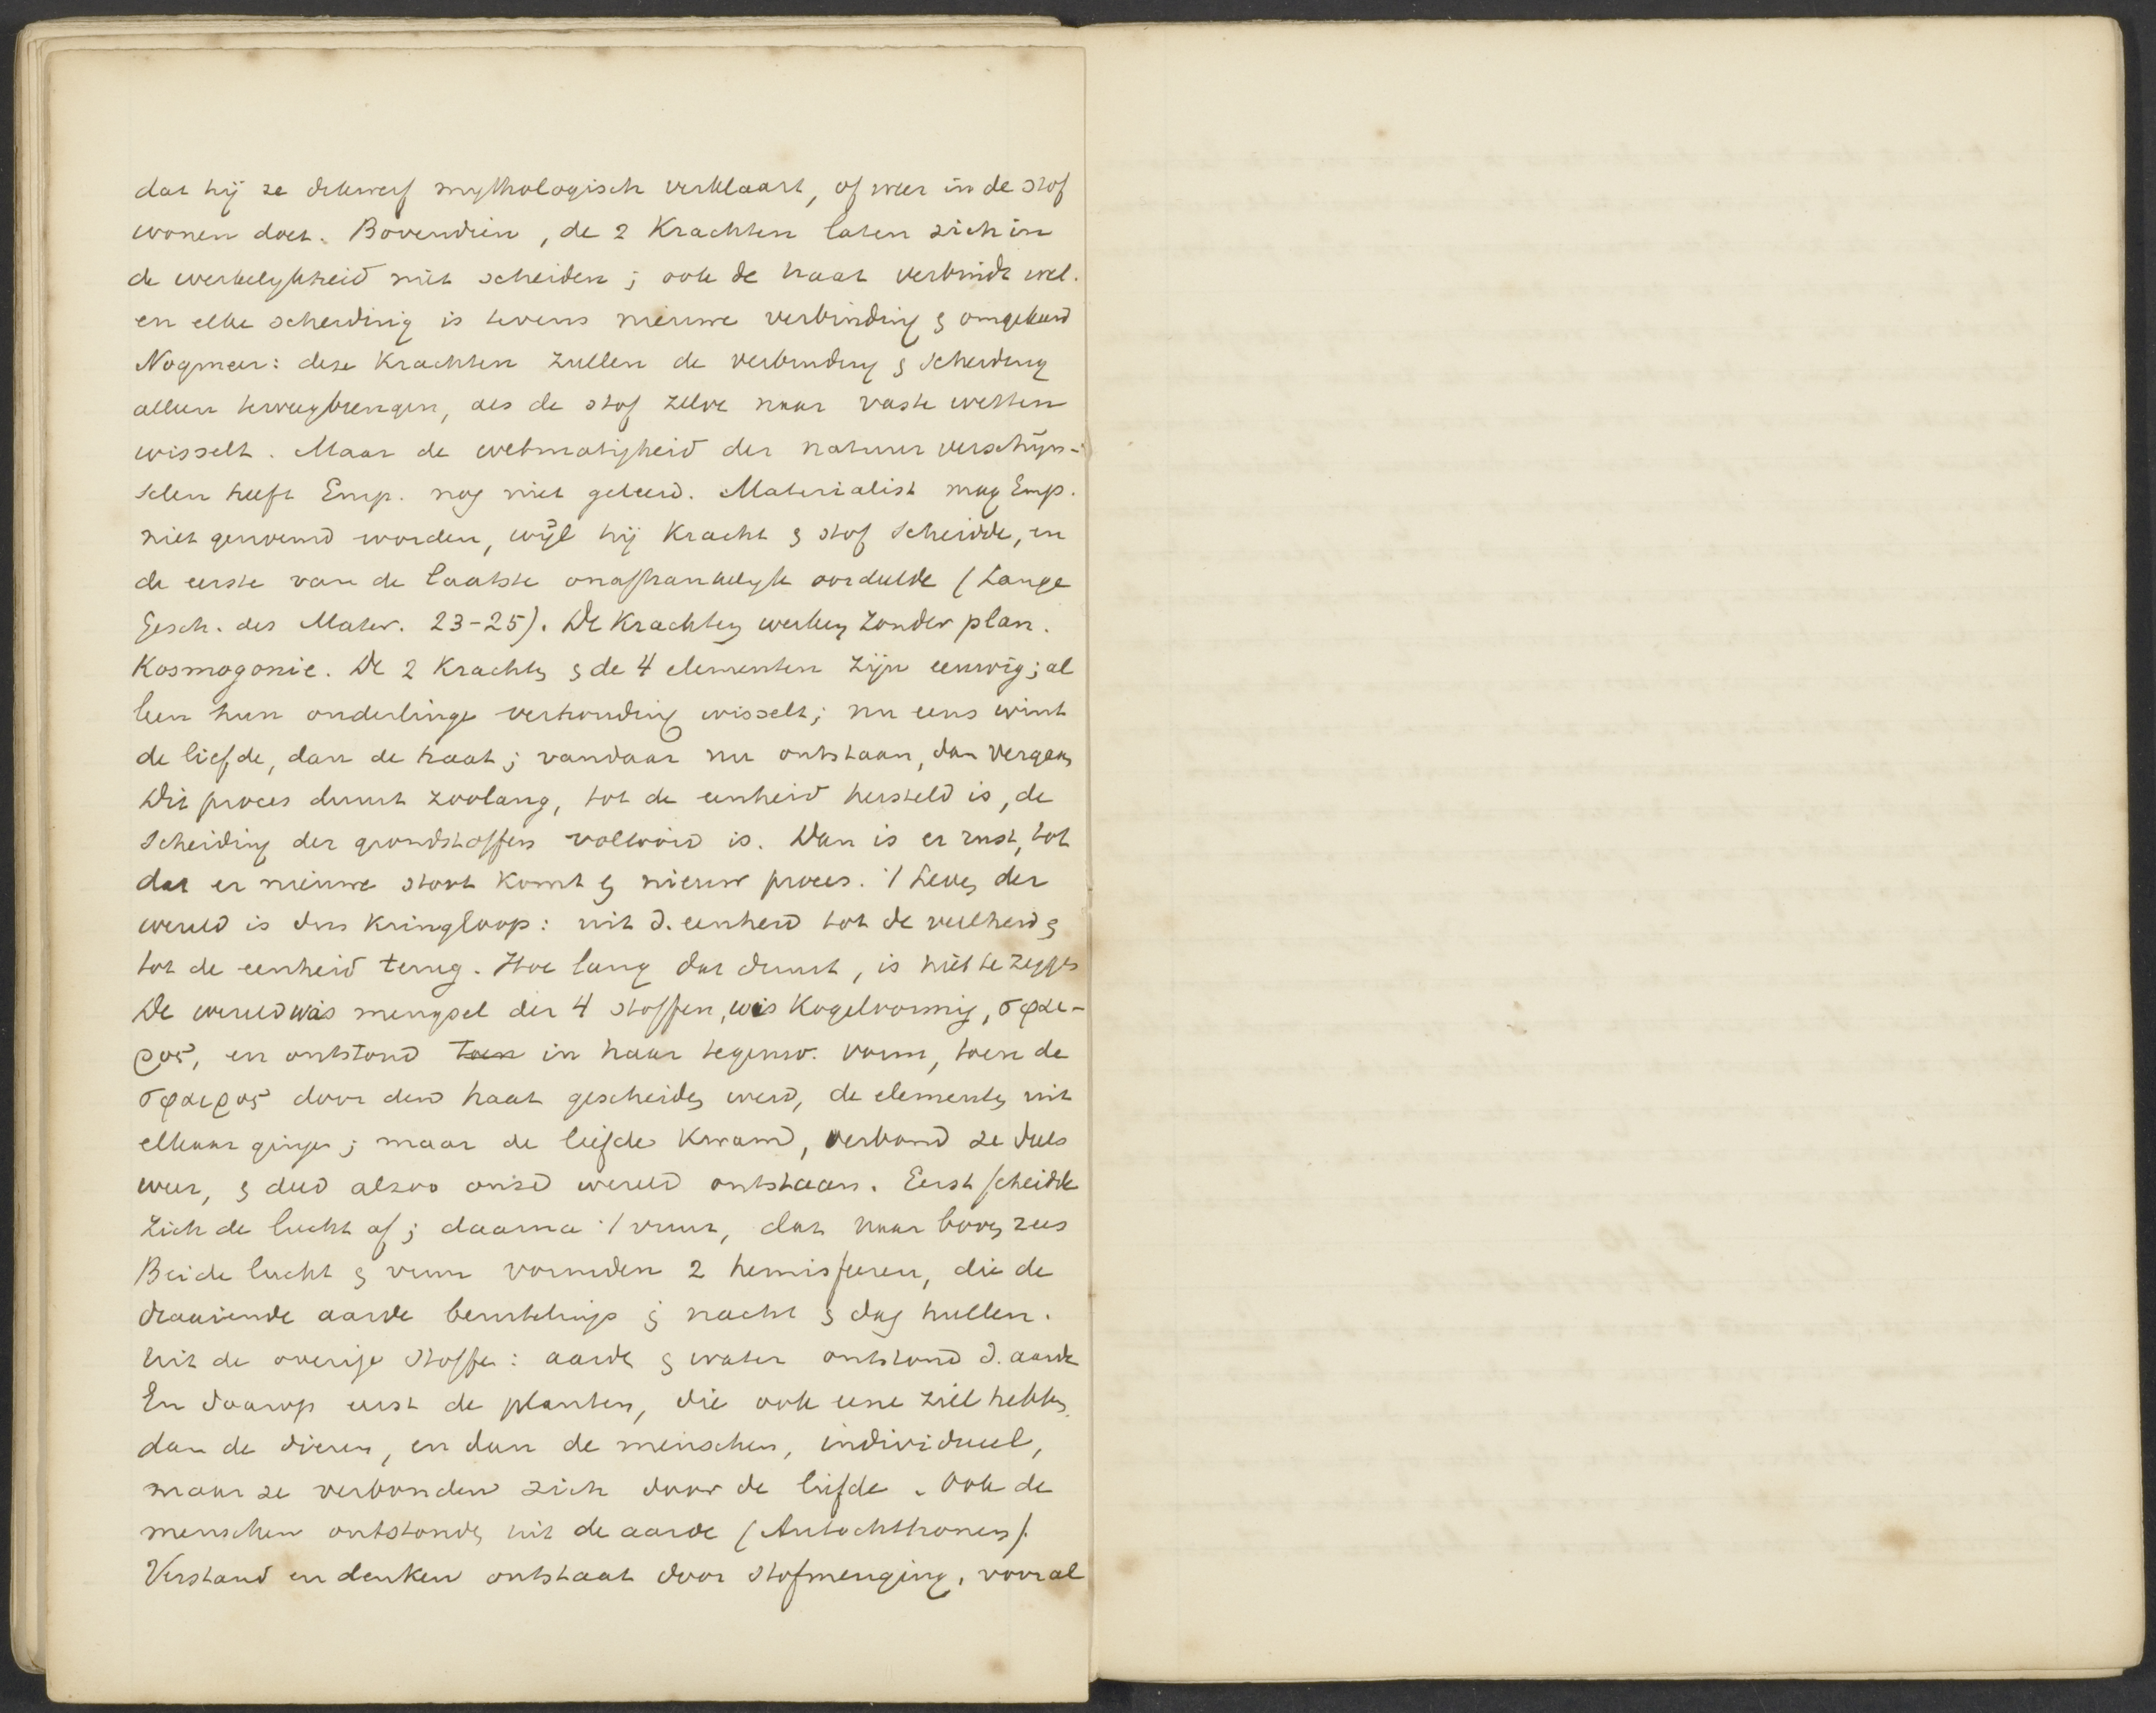 dat hij ze dikwerf mythologisch verklaart, of weer in de stof
wonen doet. Bovendien, de 2 Krachten laten zich in
de werkelykheid niet scheiden; ook de haat verbindt wel.
en elke scheiding is tevens nieuwe verbinding & omgekeerd
Nogmeer: deze Krachten zullen de verbinding & scheiding
alleen teweegbrengen, als de stof zelve naar vaste wetten
wisselt. Maar de wetmatigheid der natuur verschijn-
selen heeft Emp. nog niet geleerd. Materialist mag Emp.
niet genoemd worden, wijl hij Kracht & stof scheidde, en
de eerste van de laatste onafhankelyk oordeelde (Lange
Gesch. des Mater. 23-25). De Krachten werken zonder plan.
Kosmogonie. De 2 Krachten & de 4 elementen zijn eeuwig; al
leen hun onderlinge verhouding wisselt; nu eens wint
de liefde, dan de haat; vandaar nu ontstaan, dan vergaan
Dit proces duurt zoolang, tot de eenheid hersteld is, de
scheiding der grondstoffen voltooid is. Dan is er rust, tot
dat er nieuwe stoot komt & nieuw proces. 't Leven der
wereld is dus Kringloop: uit d. eenheid tot de veelheid &
tot de eenheid terug. Hoe lang dat duurt, is niet te zeggen
De wereld was mengsel der 4 stoffen, was Kogelvormig, σφαι-
ρος, en ontstond toen in haar tegenw. vorm, toen de
σφαιρος door den haat gescheiden werd, de elementen uit
elkaar gingen; maar de liefde kwam, verbond ze deels
weer, & deed alzoo onze wereld ontstaan. Eerst scheidde
zich de lucht af; daarna 't vuur, dat naar boven rees
Beide lucht & vuur vormden 2 hemisferen, die de
draaiende aarde beurtelings in nacht & dag hullen.
Uit de overige stoffen: aarde & water ontstond d. aarde
En daarop eerst de planten, die ook eene ziel hebben,
dan de dieren, en dan de menschen, individueel,
maar ze verbonden zich door de liefde. Ook de
menschen ontstonden uit de aarde (Autochthonen).
Verstand en denken ontstaat door stofmenging, vooral